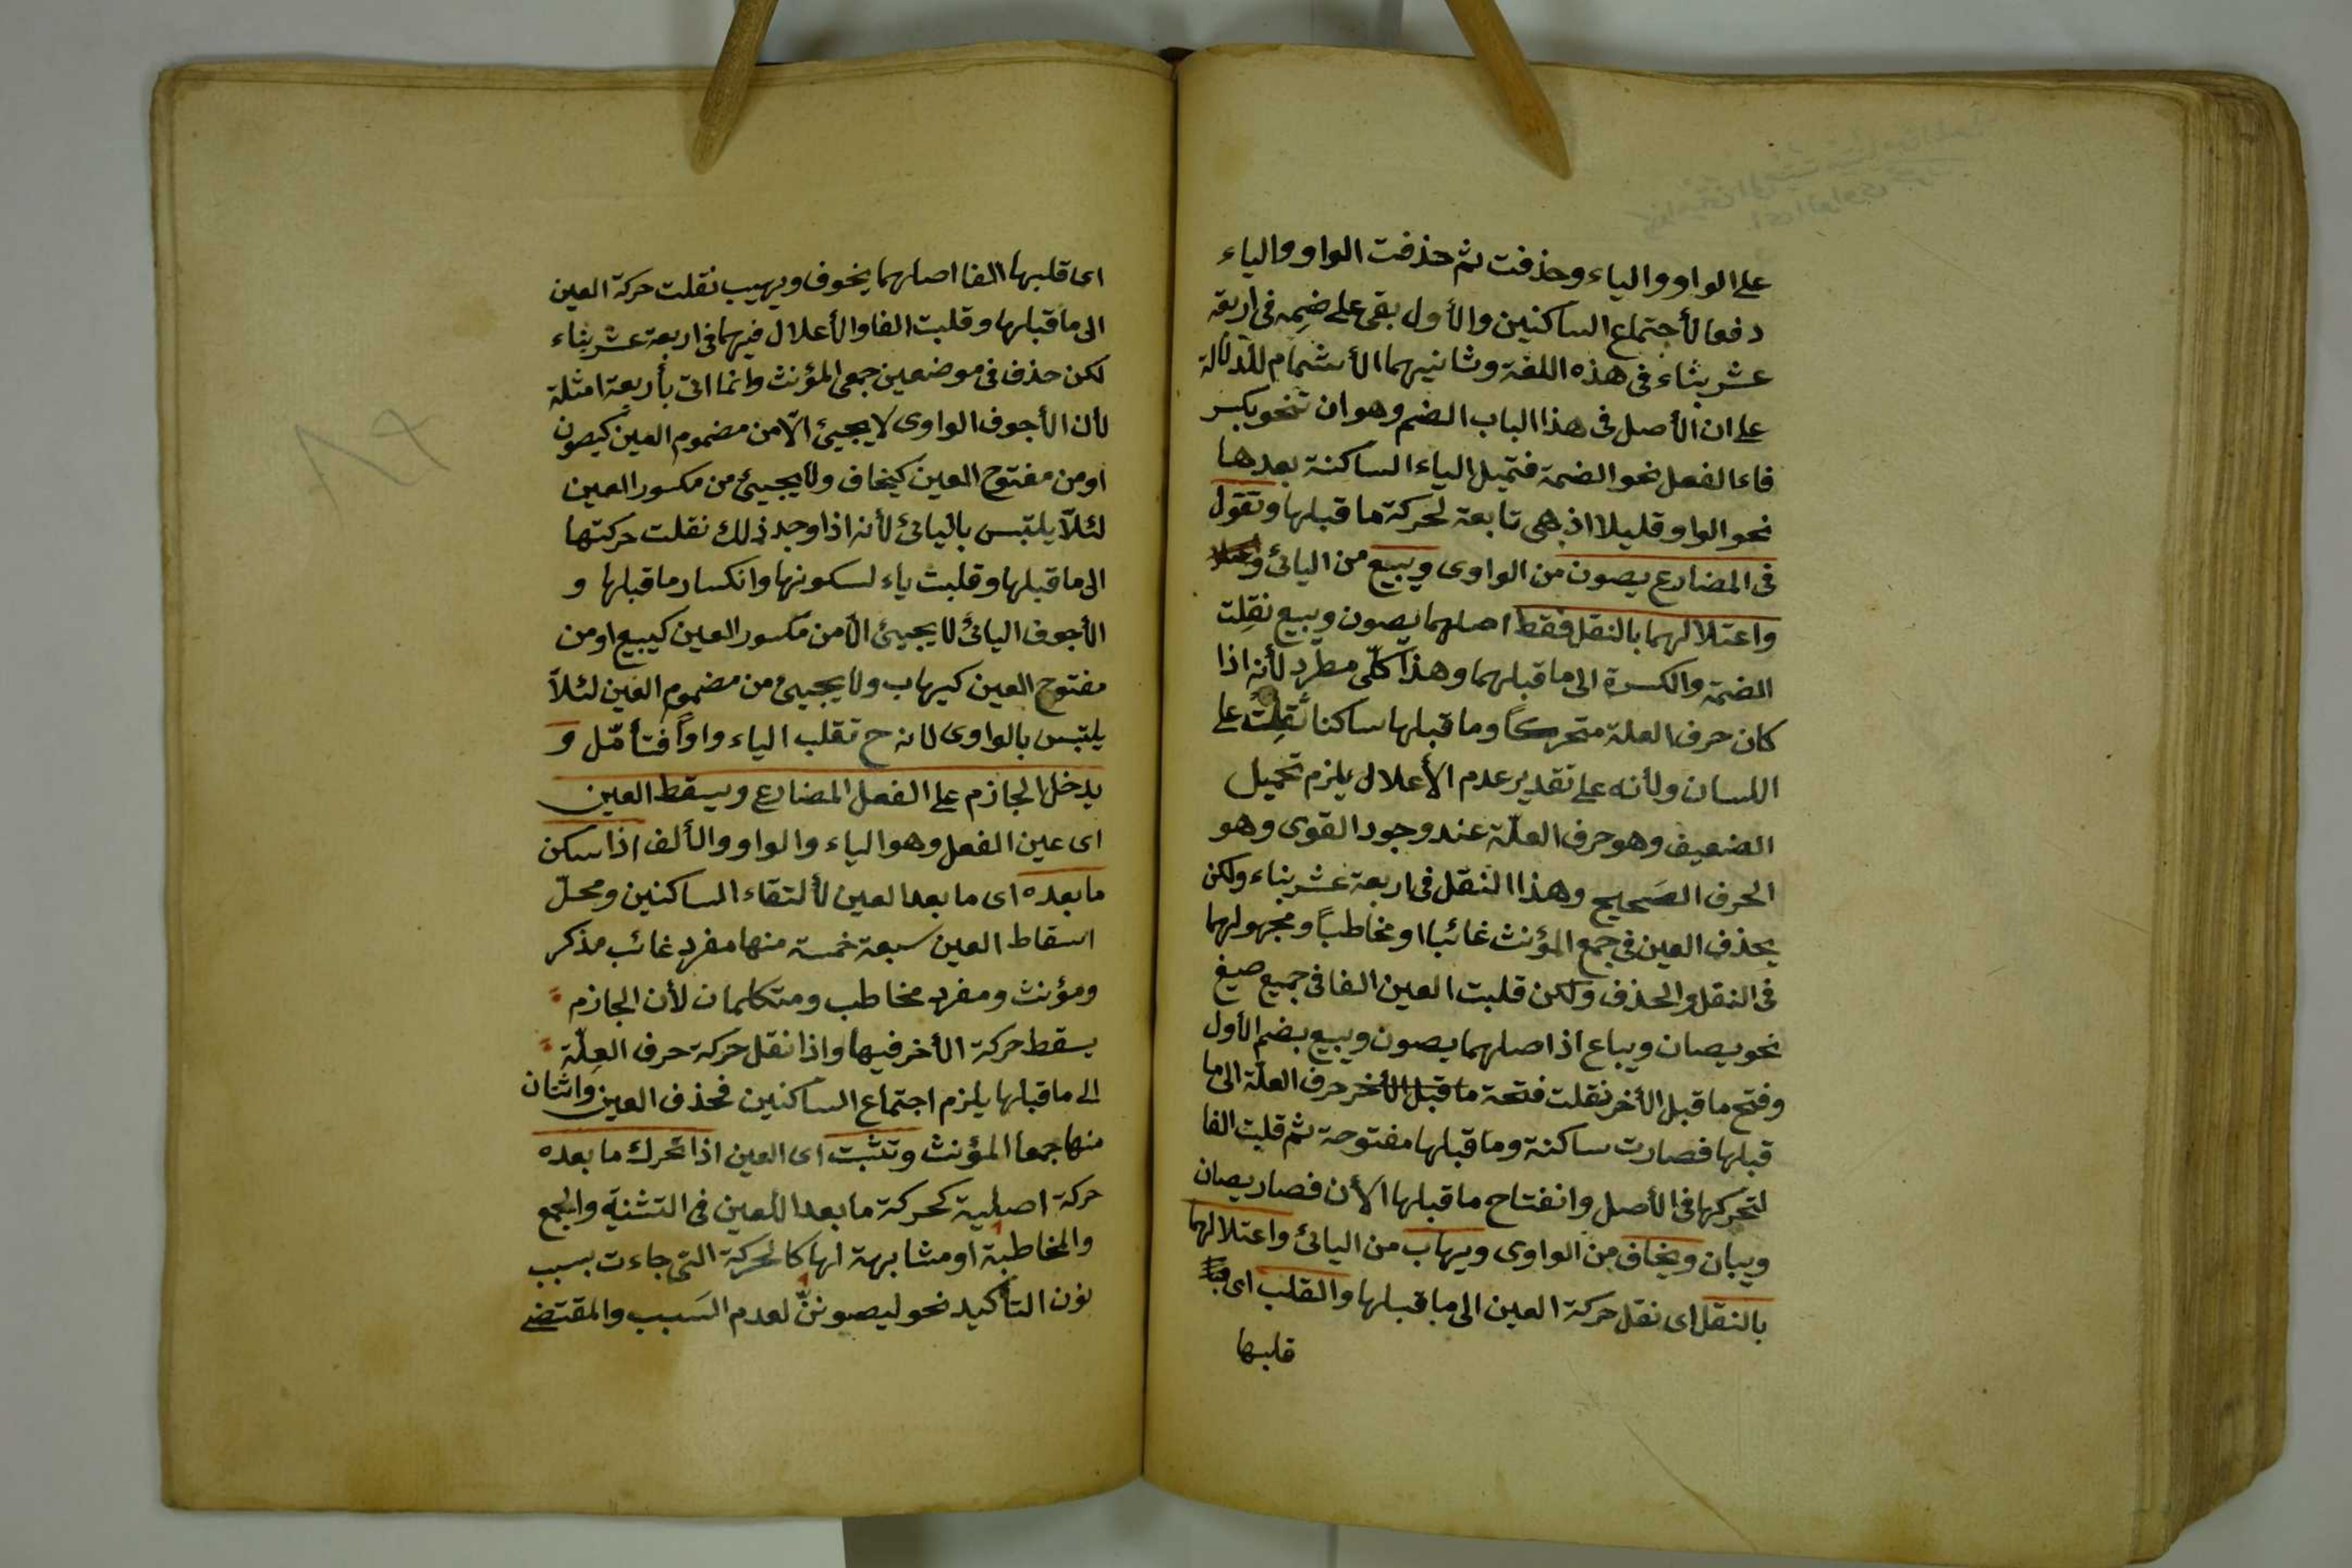 على الواو والياء وحذفت ثم حذفت الواو والياء
دفعا لأجتماع الساكنين والأول بقى على ضمه فى اربعة
عشر بناء فى هذه اللغة وثانيهما الأشمام للدلالة
على ان الأصل فى هذا الباب الضم وهو ان تنحو بكسر
فاء الفعل نحو الضمة فتميل الياء الساكنة بعدها
نحو الواو قليلا اذ هى تابعة لحركة ما قبلها وتقول
فى المضارع يصون من الواوى ويبيع من اليائى
واعتلالهما بالنقل فقط اصلهما يصون ويبيع نقلت
الضمة والكسرة الى ما قبلهما وهذا كلّى مطرد لأنه اذا
كان حرف العلة متحركاً وما قبلها ساكنا ثقلت على
اللسان ولأنه على تقدير عدم الأعلال يلزم تحميل
الضعيف وهو حرف العلّة عند وجود القوى وهو
الحرف الصَحيح وهذا النقل فى اربعة عشر بناء ولكن
يحذف العين فى جمع المؤنث غائبا او مخاطباً ومجهولهما
فى النقل والحذف ولكن قلبت العين الفا فى جميع صيغ
نحو يصان ويباع اذ اصلهما يصون ويبيع بضم الأول
وفتح ما قبل الأخر نقلت فتحة ما قبل الأخر حرف العلّة الى ما
قبلها فصارت ساكنة وما قبلها مفتوحة ثم قلبت الفا
لتحركها فى الأصل وانفتاح ما قبلها الأن فصار يصان
ويبان ويخاف من الواوى ويهاب من اليائى واعتلالهما
بالنقل اى نقل حركة العين الى ما قبلها والقلب اى
قلبها
اى قلبها الفا اصلهما يخوف ويهيب نقلت حركة العين
الى ما قبلها وقلبت الفا والأعلال فيهما فى اربعة عشر بناء
لكن حذف فى موضعين جمعى المؤنث وانما اتى بأربعة امثلة
لأن الأجوف الواوى لا يجيئ الّا من مضموم العين كيصون
او من مفتوح العين كيخاف ولا يجيئ من مكسور العين
لئلّا يلتبس باليائى لأنه اذا وجد ذلك نقلت حركتها
الى ما قبلها وقلبت ياء لسكونها وانكسار ما قبلها و
الأجوف اليائى لا يجيئ الّا من مكسور العين كيبيع او من
مفتوح العين كيهاب ولا يجيئ من مضموم العين لئلاّ
يلتبس بالواوى لانه ح تقلب الياء واواً فتأمّل و
يدخل الجازم على الفعل المضارع ويسقط العين
اى عين الفعل وهو الياء والواو والألف اذا سكن
ما بعده اى ما بعد العين لألتقاء الساكنين ومحلّ
اسقاط العين سبعة خمسة منها مفرد غائب مذكر
ومؤنث ومفرد مخاطب ومتكلمان لأن الجازم
يسقط حركة الأخر فيها واذا نقل حركة حرف العِلّة
الى ما قبلها يلزم اجتماع الساكنين فحذف العين واثنان
منها جمعا المؤنث وتثبت اى العين اذا تحرك ما بعده
حركة اصلية كحركة ما بعد العين فى التثنية والجمع
والمخاطبة او مشابهة لها كالحركة التى جاءت بسبب
نون التأكيد نحو ليصوننّ لعدم السَبب والمقتضى